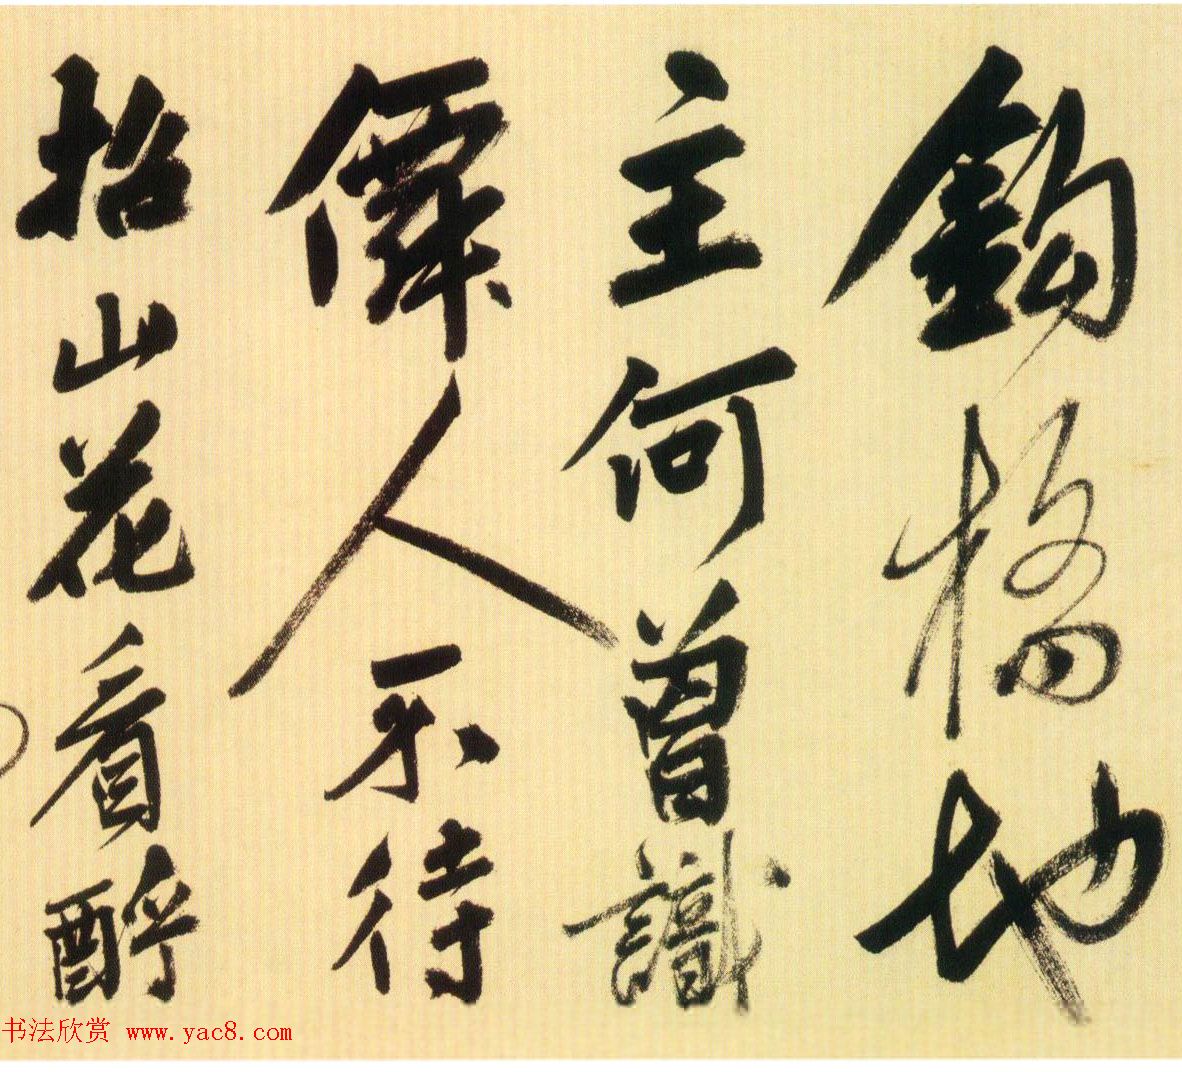 鈎橋地
主何曾識
僯人不待
招山花看醉
书法欣赏 www.yac8.com